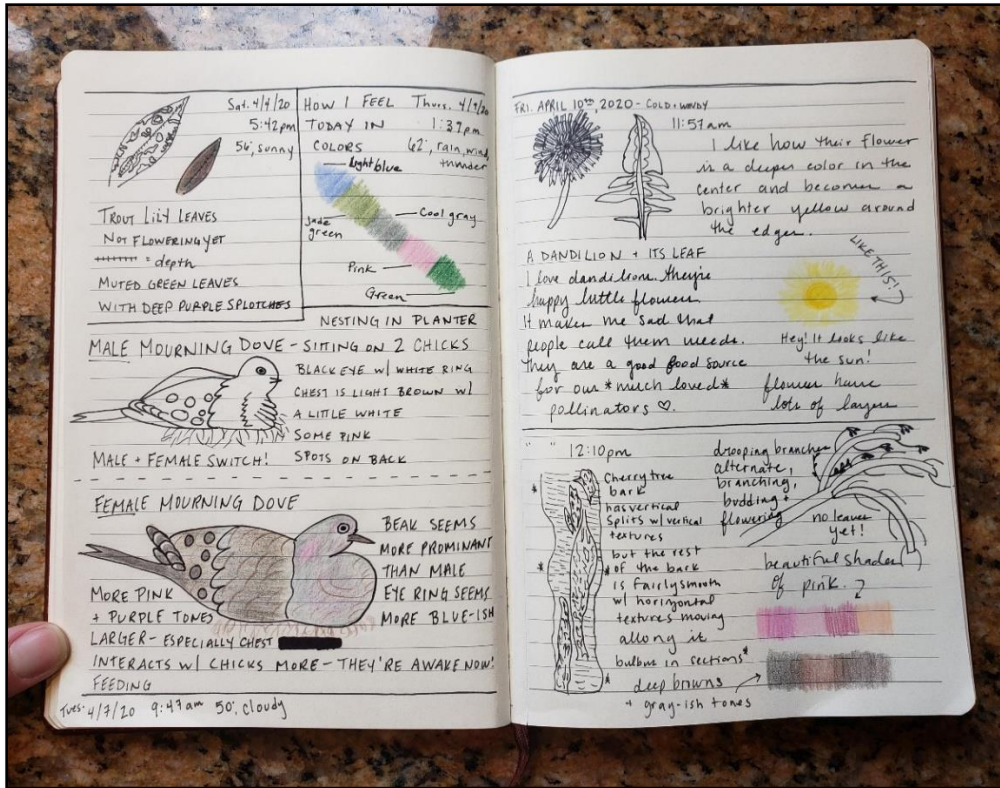 Sat. 4/4/20
5:42pm
56°, sunny
TROUT LILY LEAVES
NOT FLOWERING YET
= depth
MUTED GREEN LEAVES
WITH DEEP PURPLE SPLOTCHES
HOW I FEEL Thurs. 4/9/20
TODAY IN 1:37pm
COLORS 62°, rain, wind,
thunder
light blue
jade
green
Cool gray
Pink
Green
NESTING IN PLANTER
MALE MOURNING DOVE - SITTING ON 2 CHICKS
BLACK EYE W/ WHITE RING
CHEST IS LIGHT BROWN W/
A LITTLE WHITE
SOME PINK
SPOTS ON BACK
MALE + FEMALE SWITCH!
FEMALE MOURNING DOVE
BEAK SEEMS
MORE PROMINANT
THAN MALE
EYE RING SEEMS
MORE BLUE-ISH
MORE PINK
+ PURPLE TONES
LARGER - ESPECIALLY CHEST
INTERACTS W/ CHICKS MORE - THEY'RE AWAKE NOW!
FEEDING
Tues. 4/7/20 9:47am 50°, cloudy
FRI. APRIL 10TH, 2020 - COLD + WINDY
11:57am
I like how their flower
is a deeper color in the
center and becomes a
brighter yellow around
the edges.
LIKE THIS!
A DANDILION + ITS LEAF
I love dandilions they're
happy little flowers.
It makes me sad that
people call them weeds.
They are a good food source
for our *much loved*
pollinators ♡.
Hey! It looks like
the sun!
flowers have
lots of layers
" " 12:10pm
Cherry tree
bark
has vertical
splits w/ vertical
textures
but the rest
*of the bark
is fairly smooth
w/ horizontal
textures moving
allong it
bulbus in sections*
deep browns
+ gray-ish tones
drooping branches
alternate,
branching,
budding +
flowering
no leaves
yet!
beautiful shades
of pink.